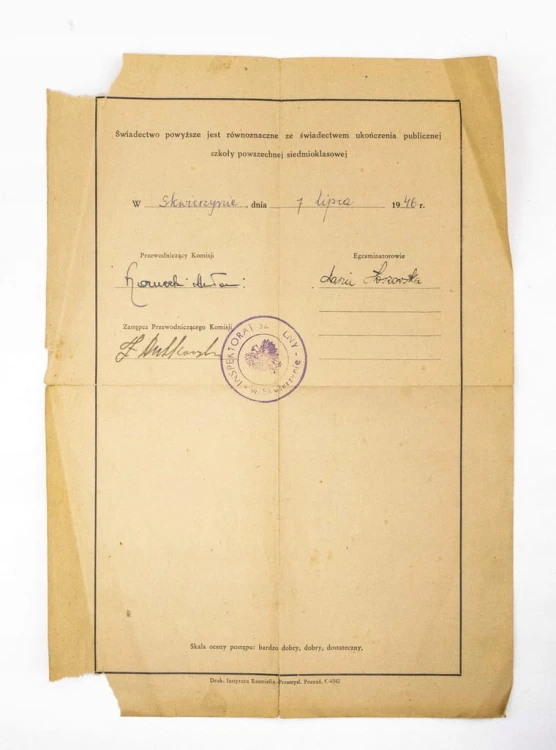 Świadectwo powyższe jest równoznaczne ze świadectwem ukończenia publicznej
szkoły powszechnej siedmioklasowej
W Skwierzynie, dnia 7 lipca 1946 r.
Przewodniczący Komisji
Egzaminatorowie
Zastępca Przewodniczącego Komisji
INSPEKTORAT SZ LNY
w Skwierzynie
Skala oceny postępu: bardzo dobry, dobry, dostateczny.
Druk. Instytutu Rzemieśln.-Przemysł. Poznań.